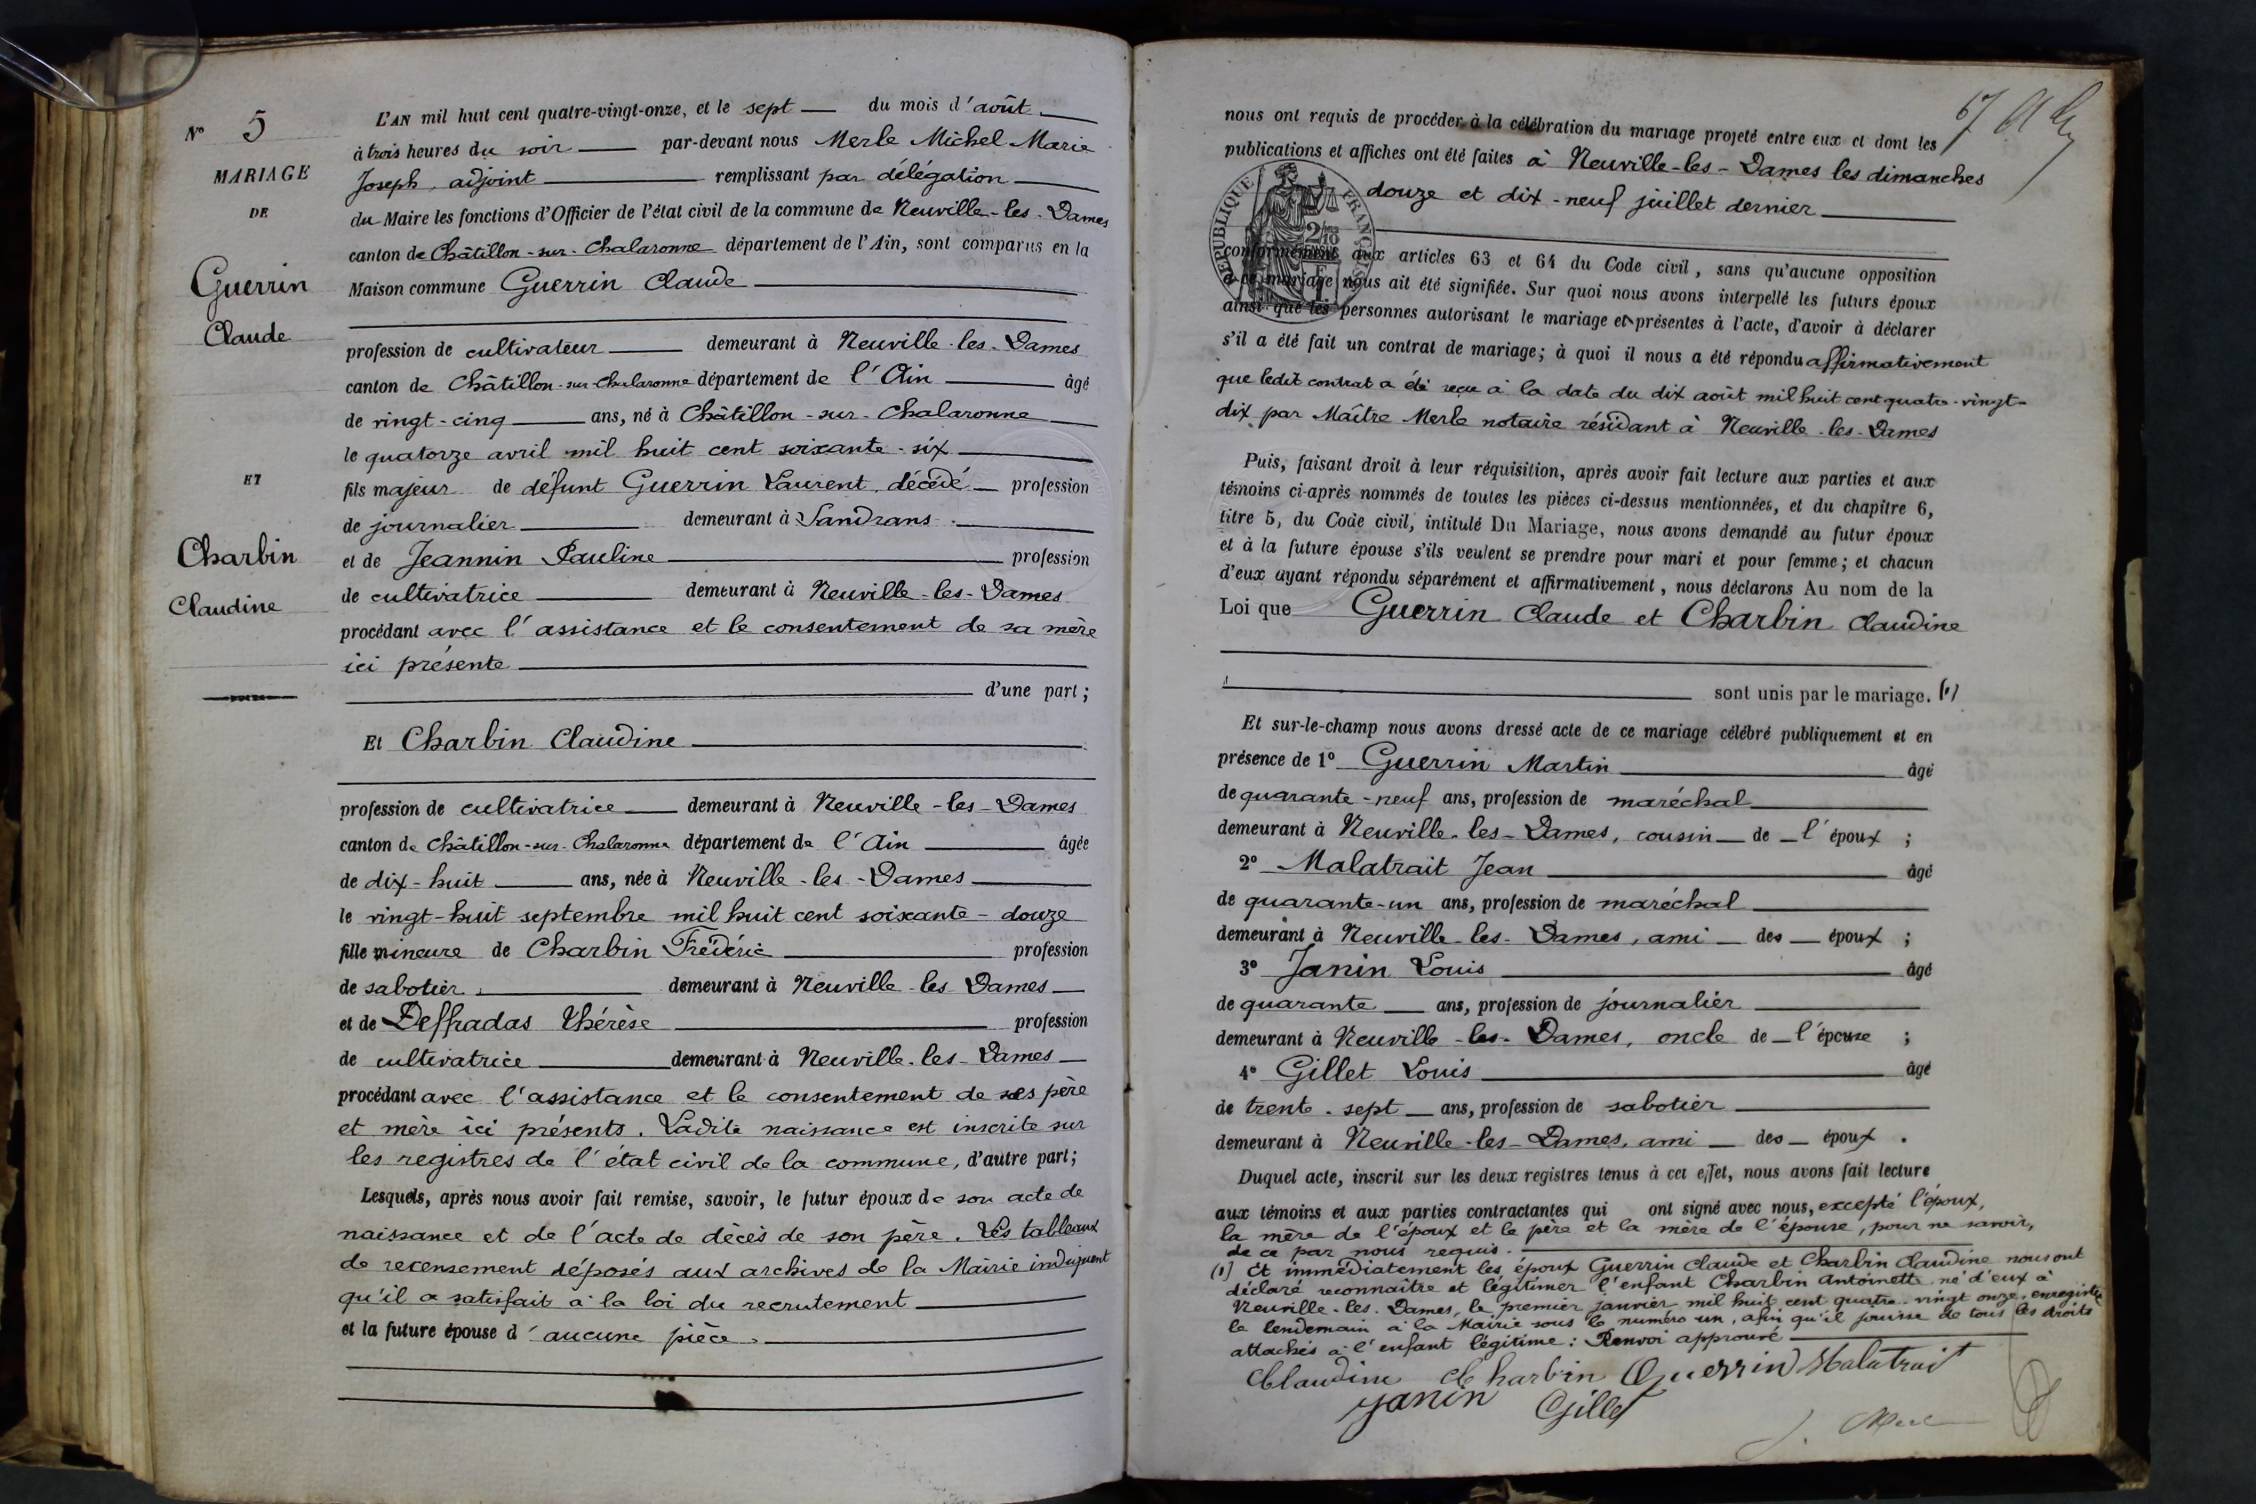 N° 5
MARIAGE
DE
Guerrin
Claude
ET
Charbin
Claudine
L'AN mil huit cent quatre-vingt-onze, et le sept du mois d'août
à trois heures du soir par-devant nous Merle Michel Marie
Joseph, adjoint remplissant par délégation
du Maire les fonctions d'Officier de l'état civil de la commune de Neuville-les-Dames
canton de Châtillon-sur-Chalaronne département de l'Ain, sont comparus en la
Maison commune Guerrin Claude
profession de cultivateur demeurant à Neuville-les-Dames
canton de Châtillon-sur-Chalaronne département de l'Ain âgé
de vingt-cinq ans, né à Châtillon-sur-Chalaronne
le quatorze avril mil huit cent soixante-six
fils majeur de défunt Guerrin Laurent, décédé profession
de journalier demeurant à Sandrans
et de Jeannin Pauline profession
de cultivatrice demeurant à Neuville-les-Dames
procédant avec l'assistance et le consentement de sa mère
ici présente
d'une part;
Et Charbin Claudine
profession de cultivatrice demeurant à Neuville-les-Dames
canton de Châtillon-sur-Chalaronne département de l'Ain âgée
de dix-huit ans, née à Neuville-les-Dames
le vingt-huit septembre mil huit cent soixante-douze
fille mineure de Charbin Frédéric profession
de sabotier demeurant à Neuville-les-Dames
et de Deffradas Thérèse profession
de cultivatrice demeurant à Neuville-les-Dames
procédant avec l'assistance et le consentement de ses père
et mère ici présents. Ladite naissance est inscrite sur
les registres de l'état civil de la commune, d'autre part;
Lesquels, après nous avoir fait remise, savoir, le futur époux de son acte de
naissance et de l'acte de décès de son père. Les tableaux
de recensement déposés aux archives de la Mairie indiquent
qu'il a satisfait à la loi du recrutement
et la future épouse d'aucune pièce.
67
nous ont requis de procéder à la célébration du mariage projeté entre eux et dont les
publications et affiches ont été faites à Neuville-les-Dames les dimanches
douze et dix-neuf juillet dernier
RÉPUBLIQUE FRANÇAISE
conformément aux articles 63 et 64 du Code civil, sans qu'aucune opposition
à ce mariage nous ait été signifiée. Sur quoi nous avons interpellé les futurs époux
ainsi que les personnes autorisant le mariage et présentes à l'acte, d'avoir à déclarer
s'il a été fait un contrat de mariage; à quoi il nous a été répondu affirmativement
que ledit contrat a été reçu à la date du dix août mil huit cent quatre-vingt-
dix par Maître Merle notaire résidant à Neuville-les-Dames
Puis, faisant droit à leur réquisition, après avoir fait lecture aux parties et aux
témoins ci-après nommés de toutes les pièces ci-dessus mentionnées, et du chapitre 6,
titre 5, du Code civil, intitulé Du Mariage, nous avons demandé au futur époux
et à la future épouse s'ils veulent se prendre pour mari et pour femme; et chacun
d'eux ayant répondu séparément et affirmativement, nous déclarons Au nom de la
Loi que Guerrin Claude et Charbin Claudine
sont unis par le mariage. (1)
Et sur-le-champ nous avons dressé acte de ce mariage célébré publiquement et en
présence de 1° Guerrin Martin âgé
de quarante-neuf ans, profession de maréchal
demeurant à Neuville-les-Dames, cousin de l'époux;
2° Malatrait Jean âgé
de quarante-un ans, profession de maréchal
demeurant à Neuville-les-Dames, ami des époux;
3° Janin Louis âgé
de quarante ans, profession de journalier
demeurant à Neuville-les-Dames, oncle de l'épouse;
4° Gillet Louis âgé
de trente-sept ans, profession de sabotier
demeurant à Neuville-les-Dames, ami des époux.
Duquel acte, inscrit sur les deux registres tenus à cet effet, nous avons fait lecture
aux témoins et aux parties contractantes qui ont signé avec nous, excepté l'époux,
la mère de l'époux et le père et la mère de l'épouse, pour ne savoir,
de ce par nous requis.
(1) Et immédiatement les époux Guerrin Claude et Charbin Claudine nous ont
déclaré reconnaître et légitimer l'enfant Charbin Antoinette né d'eux à
Neuville-les-Dames, le premier janvier mil huit cent quatre-vingt onze, enregistré
le lendemain à la Mairie sous le numéro un, afin qu'il jouisse de tous les droits
attachés à l'enfant légitime: Renvoi approuvé
Claudine Charbin Guerrin Malatrait
Janin Gillet
J. Merle